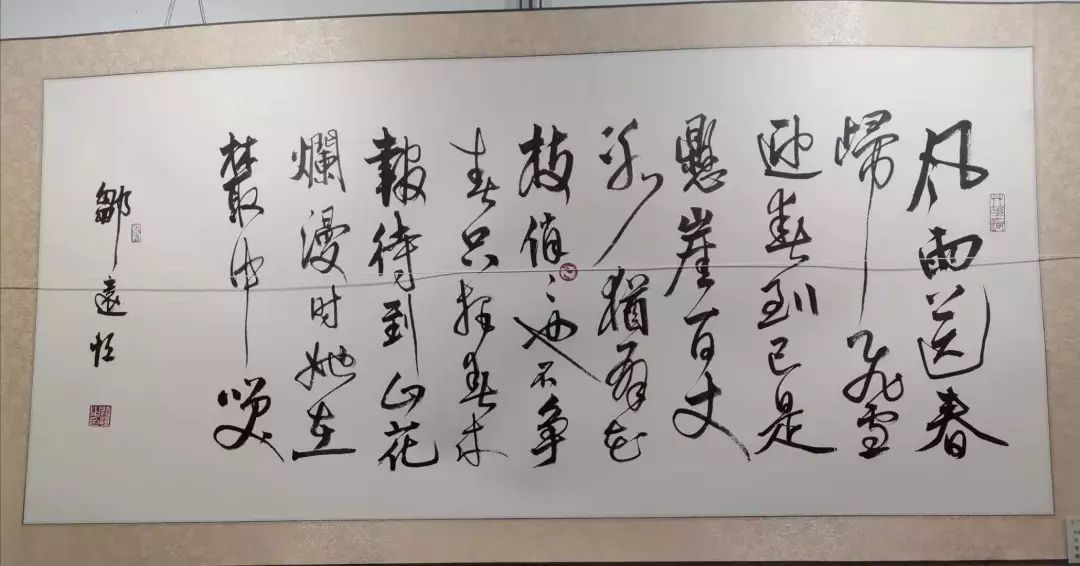 风雨送春
歸飛雪
迎春到已是
懸崖百丈
冰猶有花
枝俏〻也不争
春只把春来
報待到山花
爛漫时她在
叢中笑
鄒遠恒